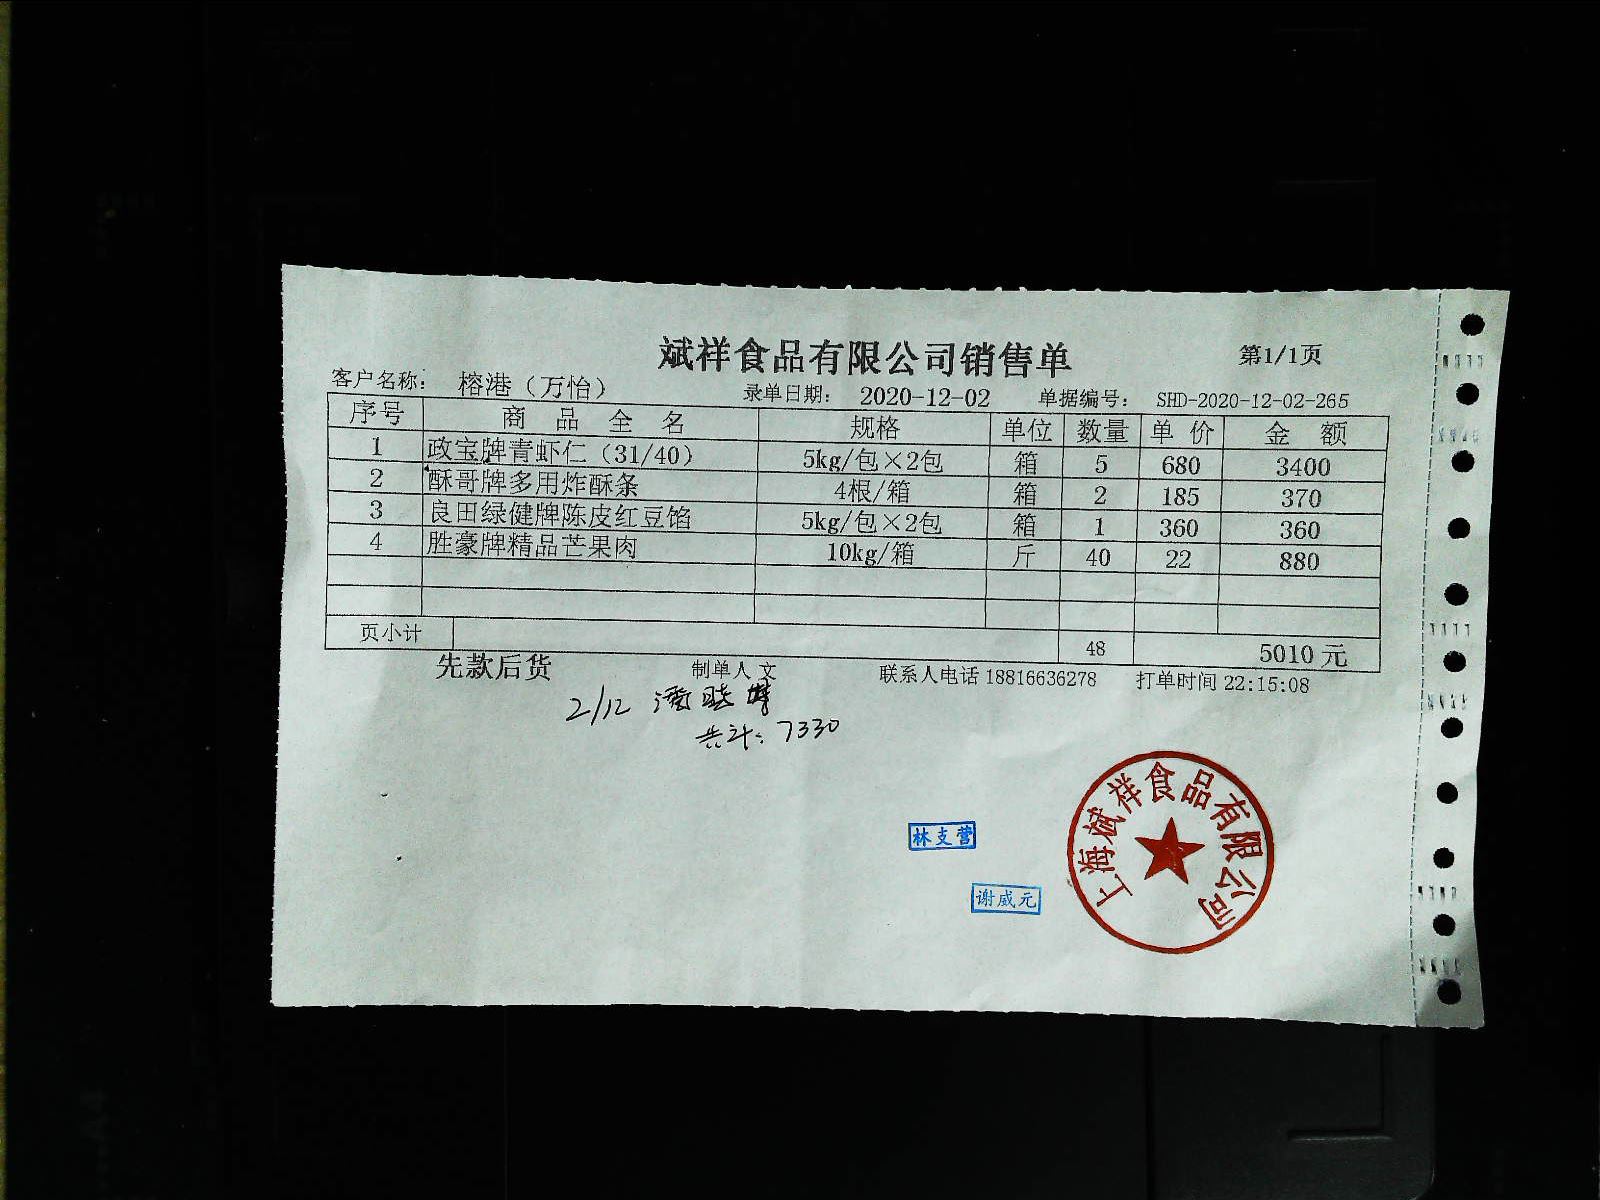 斌祥食品有限公司销售单
第1/1页
客户名称： 榕港（万怡） 录单日期： 2020-12-02 单据编号： SHD-2020-12-02-265
序号 商品全名 规格 单位 数量 单价 金额
1 政宝牌青虾仁（31/40） 5kg/包×2包 箱 5 680 3400
2 酥哥牌多用炸酥条 4根/箱 箱 2 185 370
3 良田绿健牌陈皮红豆馅 5kg/包×2包 箱 1 360 360
4 胜豪牌精品芒果肉 10kg/箱 斤 40 22 880
页小计 48 5010 元
先款后货 制单人 文 联系人电话 18816636278 打单时间 22:15:08
2/12 潘
共计: 7330
上海斌祥食品有限公司
林支营
谢威元